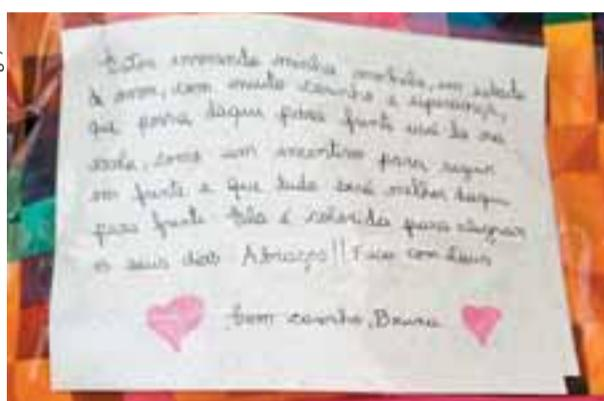 Estou enviando minha mochila, em estado
de nova, com muito carinho e esperança,
que possa daqui para frente usá-la na
escola, como um incentivo para seguir
em frente e que tudo será melhor daqui
para frente. Ela é colorida para alegrar
os seus dias Abraços!! Fica com Deus
Com carinho, Bruna